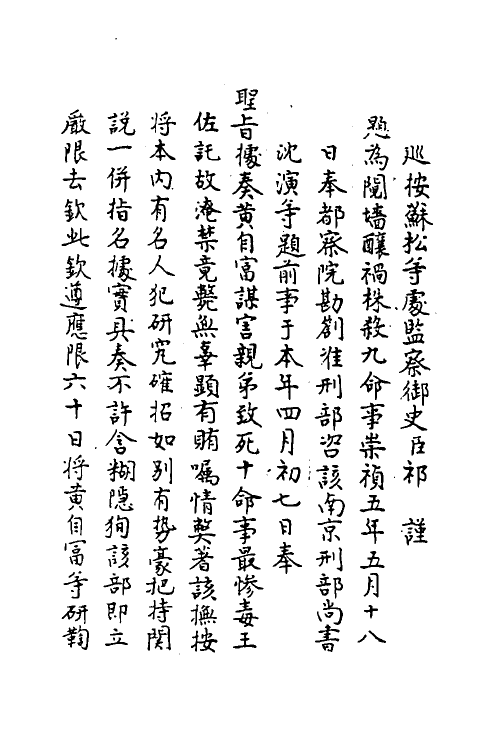 巡按蘇松等處監察御史臣祁　謹
題為鬩墻釀禍株殺九命事崇禎五年五月十八
日奉都察院勘劄准刑部咨該南京刑部尚書
沈演等題前事于本年四月初七日奉
聖旨據奏黄自富謀害親弟致死十命事最惨毒王
佐託故淹禁竟斃無辜顯有賄囑情獘著該撫按
将本内有名人犯研究確招如别有势豪把持関
説一併指名據實具奏不許含糊隱狥該部即立
嚴限去欽此欽遵應限六十日将黄自冨等研鞫